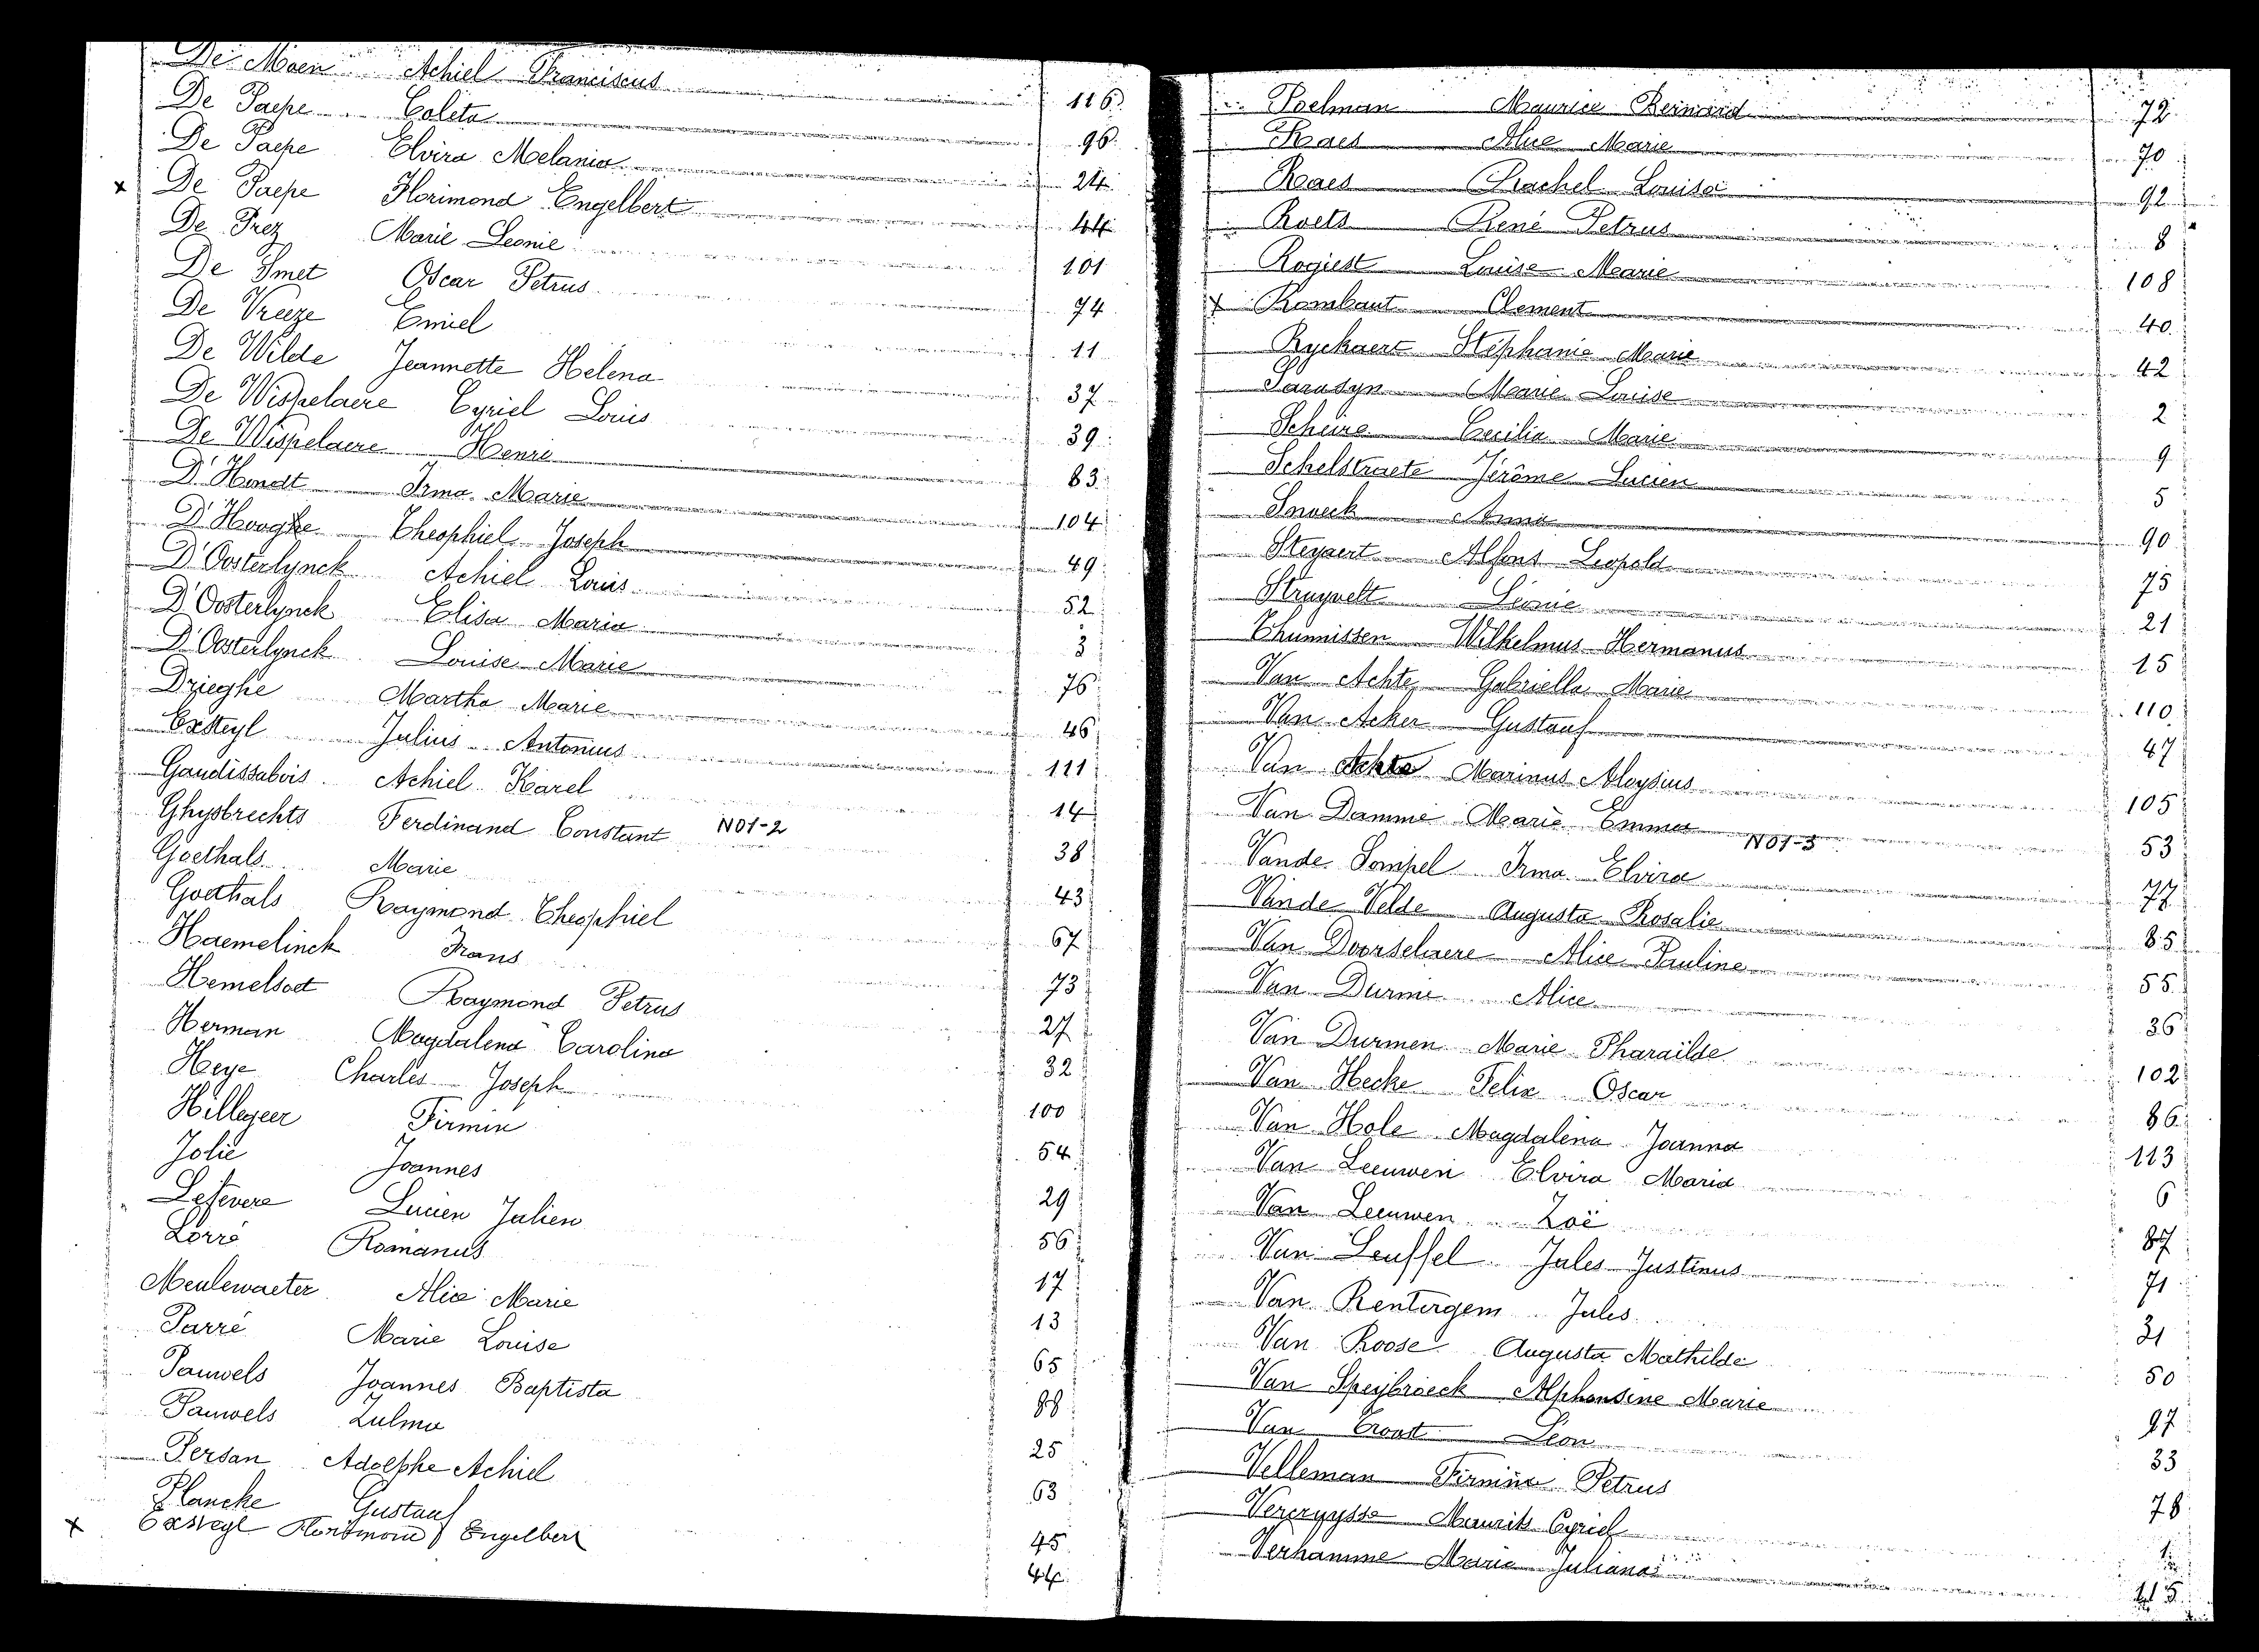 De Moen Achiel Franciscus 116
De Paepe Coleta 96
De Paepe Elvira Melania 24
x De Paepe Florimond Engelbert 44
De Prez Marie Leonie 101
De Smet Oscar Petrus 74
De Vreeze Emiel 11
De Wilde Jeannette Helena 37
De Wispelaere Cyriel Louis 39
De Wispelaere Henri 83
D'Hondt Irma Marie 104
D'Hooghe Theophiel Joseph 49
D'Oosterlynck Achiel Louis 52
D'Oosterlynck Elisa Maria 3
D'Oosterlynck Louise Marie 76
Drieghe Martha Marie 46
Exsteyl Julius Antonius 111
Gaudissabois Achiel Karel 14
Ghysbrechts Ferdinand Constant N01-2 38
Goethals Marie 43
Goethals Raymond Theophiel 67
Haemelinck Frans 73
Hemelsoet Raymond Petrus 27
Herman Magdalena Carolina 32
Heye Charles Joseph 100
Hillegeer Firmin 54
Jolie Joannes 29
Lefevere Lucien Julien 56
Lorré Romanus 17
Meulewaeter Alice Marie 13
Parré Marie Louise 65
Pauwels Joannes Baptista 88
Pauwels Zulma 25
Persan Adolphe Achiel 63
Plancke Gustaaf 45
x Exsteyl Florimond Engelbert 44
Poelman Maurice Bernard 72
Raes Alice Marie 70
Raes Rachel Louisa 92
Roets René Petrus 8
Rogiest Louise Marie 108
x Rombaut Clement 40
Ryckaert Stéphanie Marie 42
Sarasyn Marie Louise 2
Scheire Cecilia Marie 9
Schelstraete Jérôme Lucien 5
Snoeck Anna 90
Steyaert Alfons Leopold 75
Struyvelt Léonie 21
Thunnissen Wilhelmus Hermanus 15
Van Achte Gabriella Marie 110
Van Acker Gustaaf 47
Van Achte Marinus Aloysius 105
Van Damme Marie Emma 53
N01-3
Vande Sompel Irma Elvira 77
Vande Velde Augusta Rosalie 85
Van Doorselaere Alice Pauline 55
Van Durme Alice 36
Van Durmen Marie Pharaïlde 102
Van Hecke Felix Oscar 86
Van Hole Magdalena Joanna 113
Van Leeuwen Elvira Maria 6
Van Leeuwen Zoë 87
Van Leuffel Jules Justinus 71
Van Rentergem Jules 31
Van Roose Augusta Mathilde 50
Van Speybroeck Alphonsine Marie 97
Van Troost Léon 33
Velleman Firmina Petrus 78
Vercruysse Maurits Cyriel 1
Verhamme Maria Juliana 115